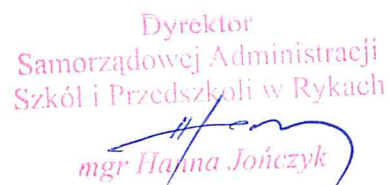 Dyrektor
Samorządowej Administracji
Szkół i Przedszkoli w Rykach
mgr Hanna Jończyk